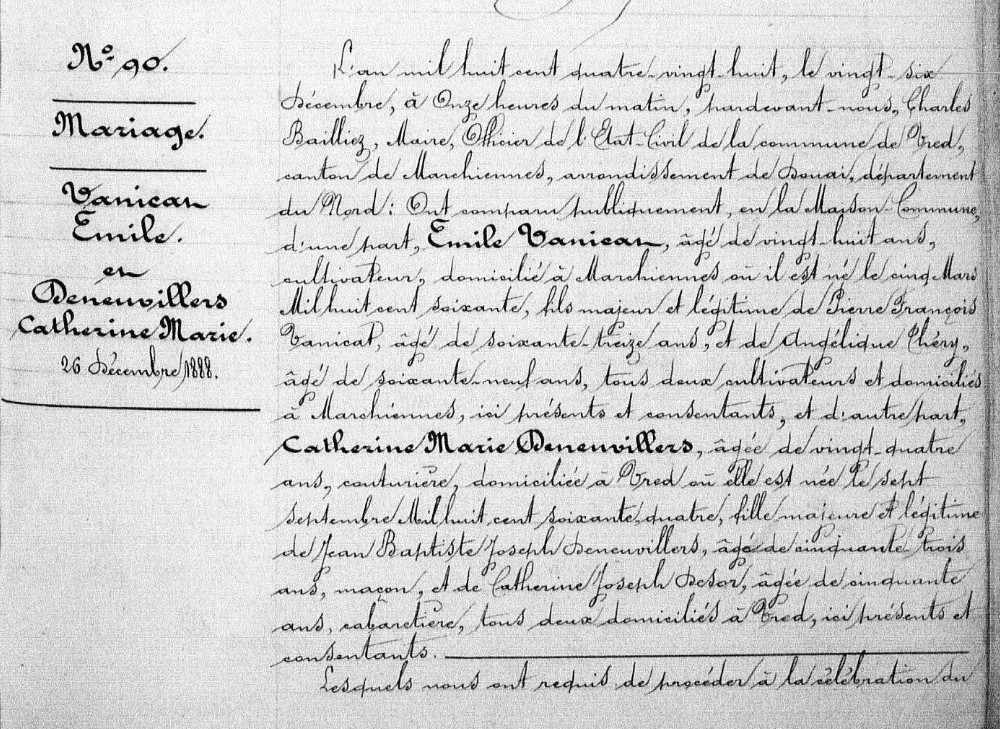 N.o 90.
Mariage.
Vanicat
Émile.
et
Deneuvillers
Catherine Marie.
26 Décembre 1888.
L'an mil huit cent quatre-vingt-huit, le vingt-six
Décembre, à Onze heures du matin, pardevant-nous, Charles
Bailliez, Maire, Officier de l'État-Civil de la commune de Vred,
canton de Marchiennes, arrondissement de Douai, département
du Nord : Ont comparu publiquement, en la Maison-Commune,
d'une part, Émile Vanicat, âgé de vingt-huit ans,
cultivateur, domicilié à Marchiennes où il est né le cinq Mars
Mil huit cent soixante, fils majeur et légitime de Pierre François
Vanicat, âgé de soixante-treize ans, et de Angélique Chéry,
âgé de soixante-neuf ans, tous deux cultivateurs et domiciliés
à Marchiennes, ici présents et consentants, et d'autre part,
Catherine Marie Deneuvillers, âgée de vingt-quatre
ans, couturière, domiciliée à Vred où elle est née le sept
septembre Mil huit cent soixante-quatre, fille majeure et légitime
de Jean Baptiste Joseph Deneuvillers, âgé de cinquante-trois
ans, maçon, et de Catherine Joseph Desor, âgée de cinquante
ans, cabaretière, tous deux domiciliés à Vred, ici présents et
consentants.
Lesquels nous ont requis de procéder à la célébration du